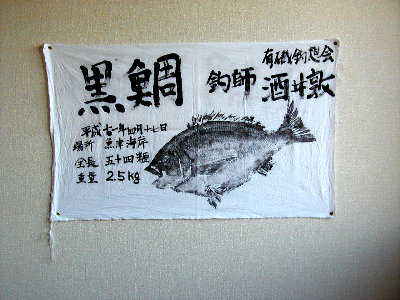 黒鯛
有磯釣会
釣師 酒井敦
平成年四月十七日
場所 魚津海岸
全長 五十四糎
重量 2.5kg